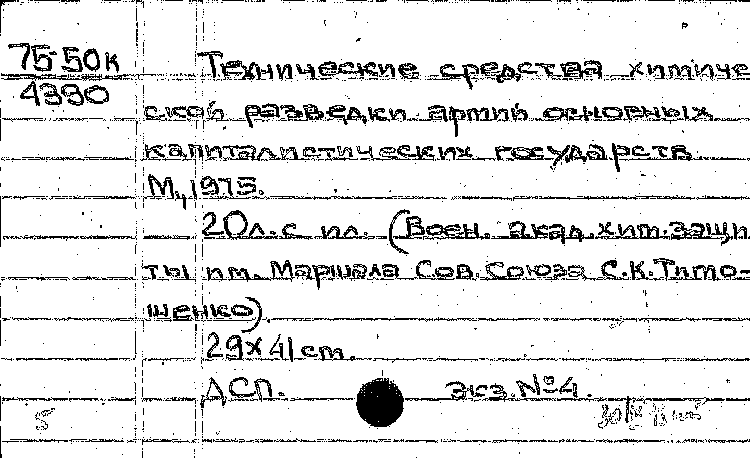 75-50к
4390
Технические средства химиче
ской разведки армий основных
капиталистических государств.
М., 1975.
20л. с ил. (Воен. акад. хим. защи
ты им. Маршала Сов. Союза С.К. Тимо-
шенко).
29х41cm.
ДСП. экз. №4.
5